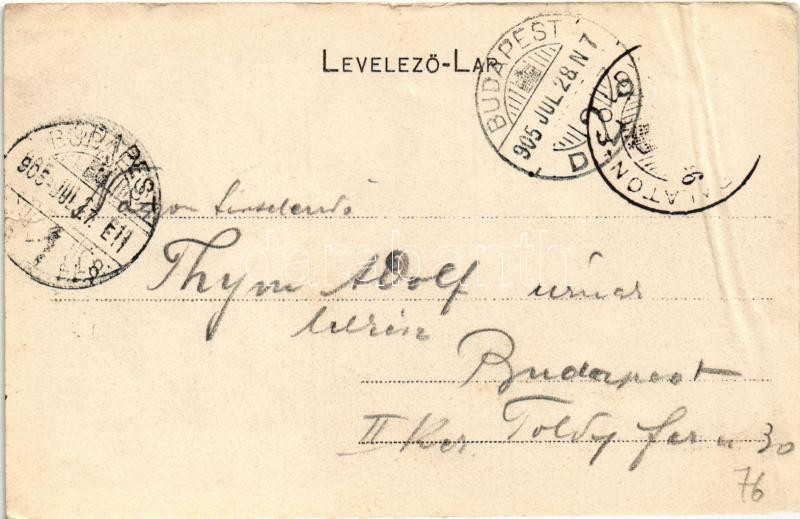 LEVELEZŐ-LAP
BUDAPEST
905 JUL 28 N 7
D
BALATON
BUDAPEST
905-JUL 27 E11
Thym Adolf úrnak
Budapest
II Ker. Toldy fer u 30
76
darabanth